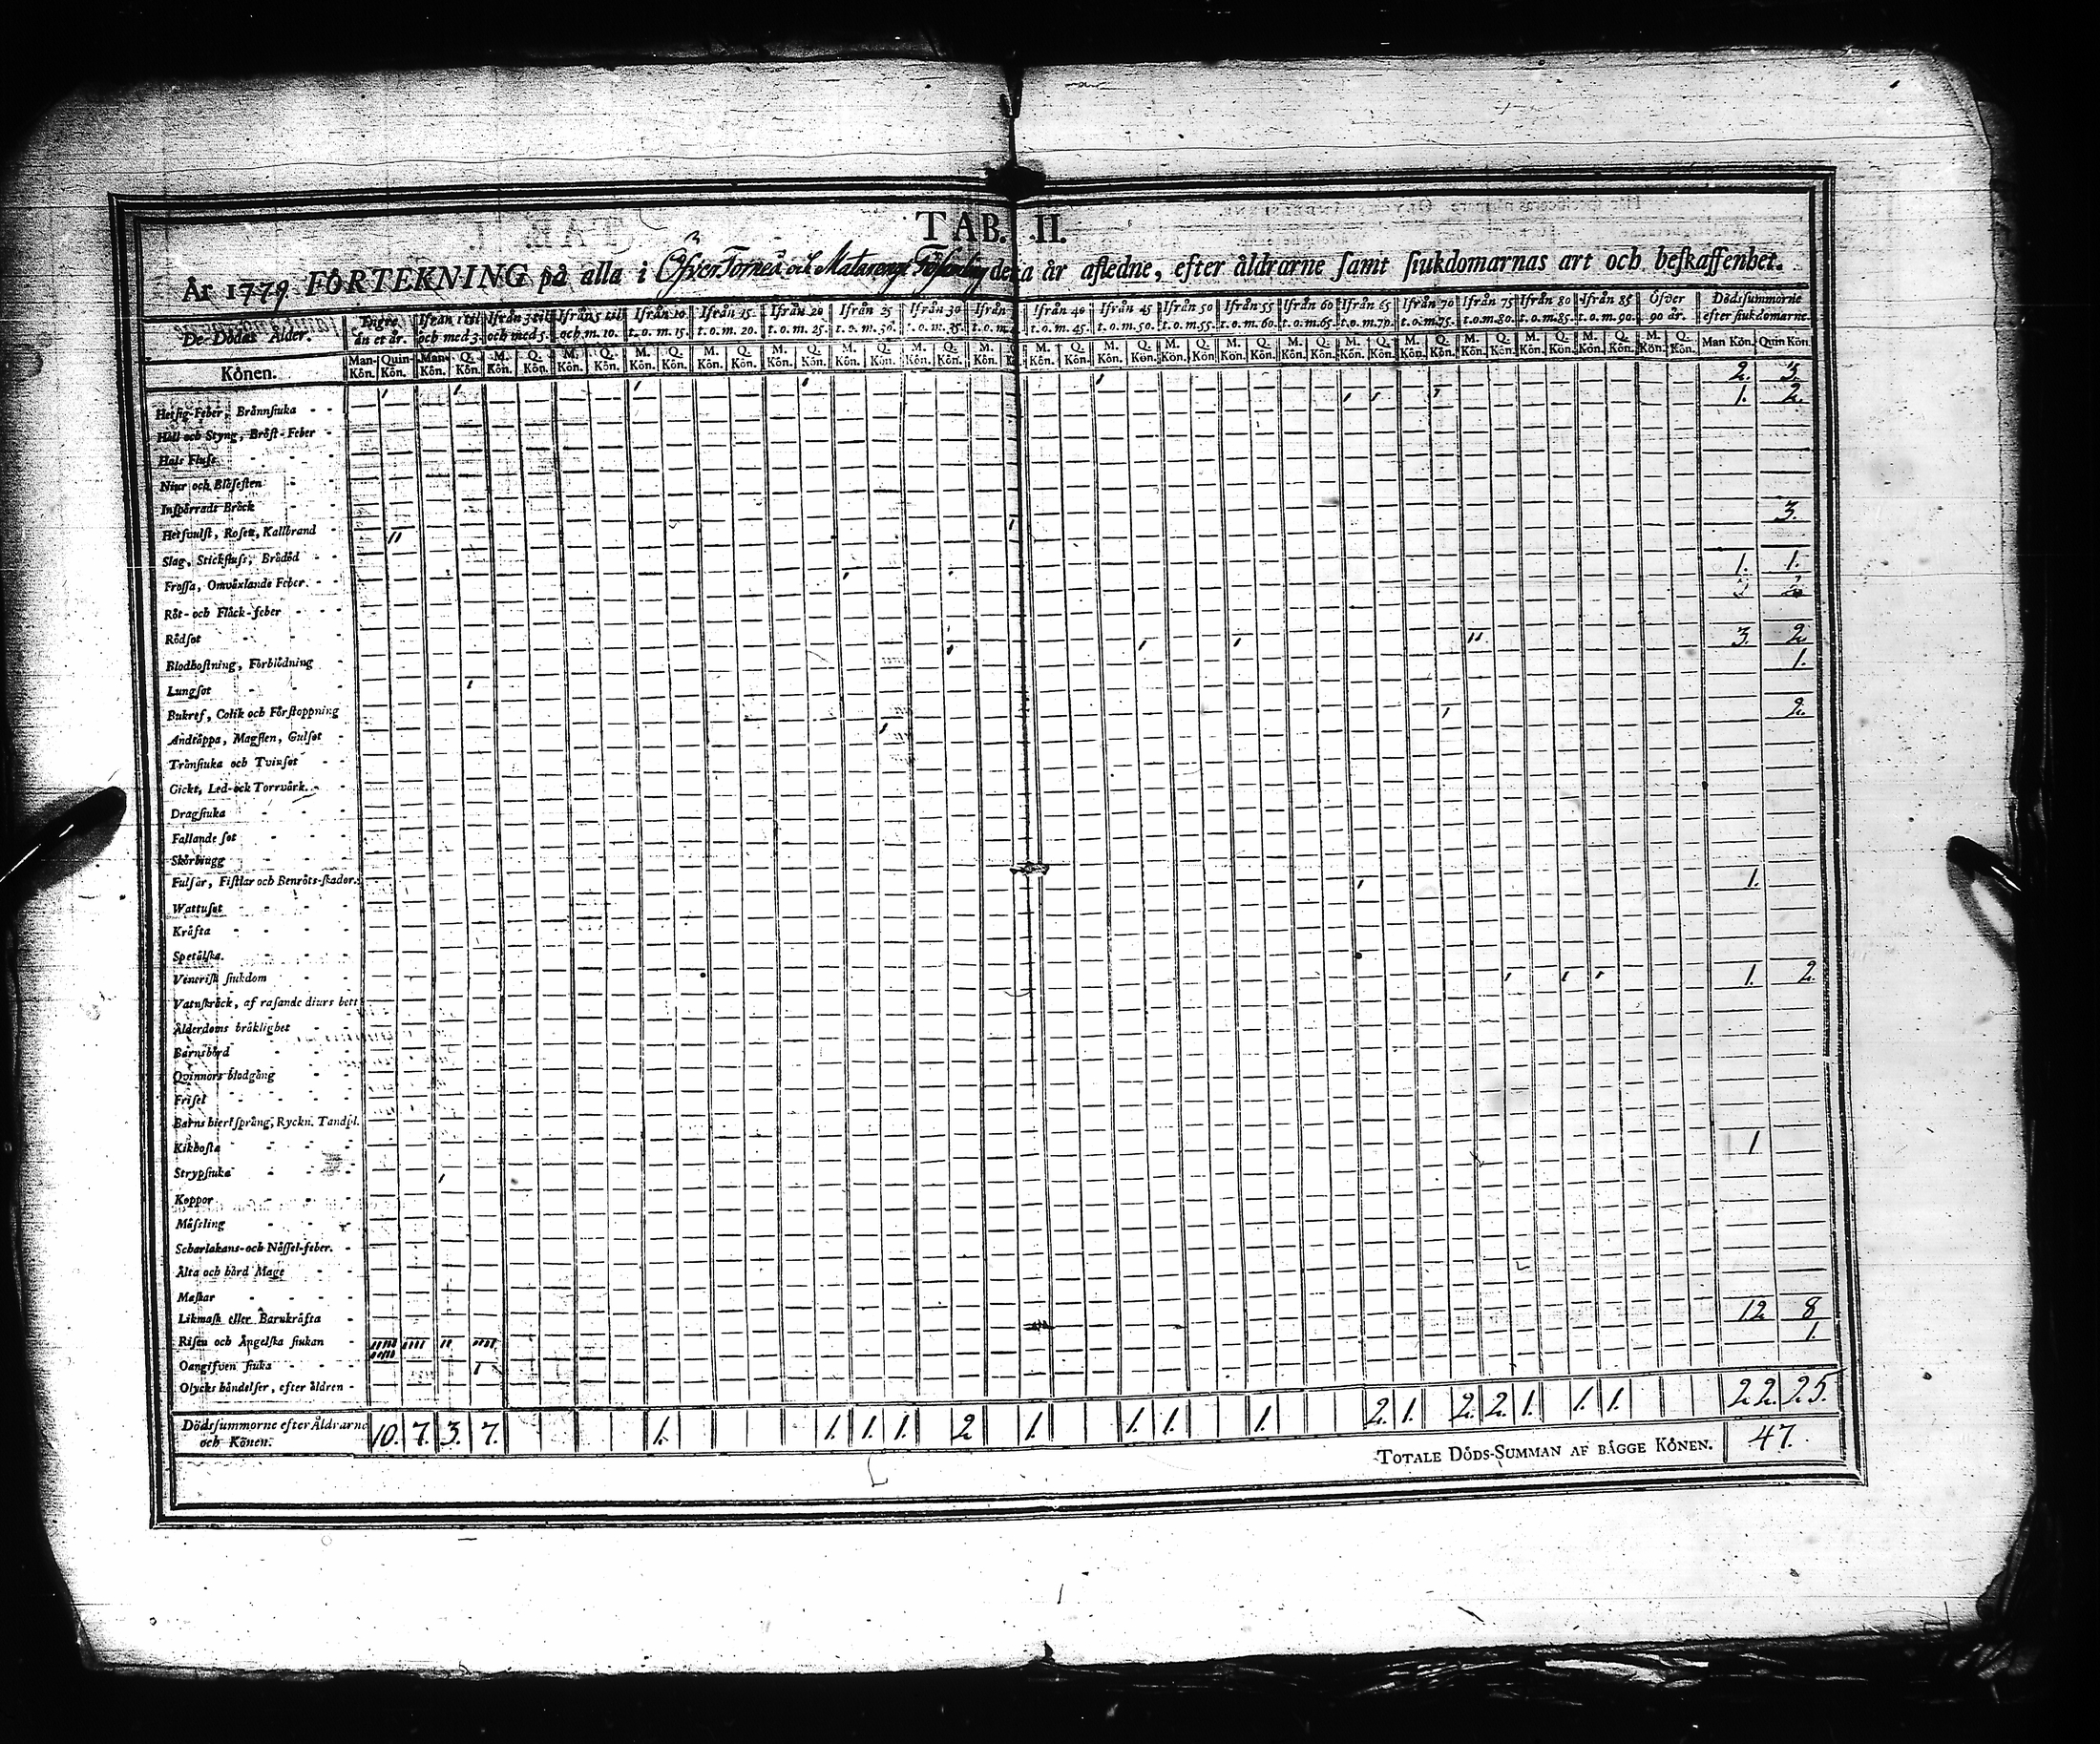 TAB. II.
År 1779 FÖRTEKNING på alla i Öfver Torneå och Matarengi Församling deſſa år afledne, efter åldrarne ſamt ſiukdomarnas art och beſkaffenhet.
De Dödas Ålder. Yngre än et år. Ifrån 1 til och med 3. Ifrån 3 til och med 5. Ifrån 5 till och m. 10. Ifrån 10 t. o. m. 15. Ifrån 15 t. o. m. 20. Ifrån 20 t. o. m. 25. Ifrån 25 t. o. m. 30. Ifrån 30 t. o. m. 35. Ifrån t. o. m. Ifrån 40 t. o. m. 45. Ifrån 45 t. o. m. 50. Ifrån 50 t. o. m. 55. Ifrån 55 t. o. m. 60. Ifrån 60 t. o. m. 65. Ifrån 65 t. o. m. 70. Ifrån 70 t. o. m. 75. Ifrån 75 t. o. m. 80. Ifrån 80 t. o. m. 85. Ifrån 85 t. o. m. 90. Öfver 90 år. Dödsſummorne efter ſiukdomarne.
Könen. Man-Kön. Quin-Kön. Man-Kön. Q. Kön. M. Kön. Q. Kön. M. Kön. Q. Kön. M. Kön. Q. Kön. M. Kön. Q. Kön. M. Kön. Q. Kön. M. Kön. Q. Kön. M. Kön. Q. Kön. M. Kön. M. Kön. Q. Kön. M. Kön. Q. Kön. M. Kön. Q. Kön. M. Kön. Q. Kön. M. Kön. Q. Kön. M. Kön. Q. Kön. M. Kön. Q. Kön. M. Kön. Q. Kön. M. Kön. Q. Kön. M. Kön. Q. Kön. M. Kön. Q. Kön. Man Kön. Quin Kön.
Hetſig-Feber, Brännſiuka 2. 3.
Håll och Styng, Bröſt-Feber 1. 2.
Hals Fluſs
Niur och Bleſeſten
Inſpärradt Bräck
Hetſvulſt, Roſen, Kallbrand
Slag, Stickfluſs, Brådöd 3.
Froſſa, Omväxlande Feber
Röt- och Fläck-feber 1. 1.
Rödſot 2.
Blodhoſtning, Förblödning
Lungſot 3. 2.
Bukref, Colik och Förſtoppning 1.
Andtäppa, Magſten, Gulſot
Trånſiuka och Tvinſot 2.
Gickt, Led-och Torrvärk.
Dragſiuka
Fallande ſot
Skörbiugg
Fulſår, Fiſtlar och Benröts-ſkador.
Wattuſot 1.
Kräfta
Spetälſka.
Veneriſk ſiukdom
Vatnſkräck, af raſande diurs bett
Ålderdoms bräklighet 1. 2.
Barnsbörd
Qvinnors blodgång
Friſel
Barns hiertſprång, Ryckn. Tandſl.
Kikhoſta
Strypſiuka
Koppor 1
Mäſsling
Scharlakans-och Näſſel-feber.
Älta och hård Mage
Maſkar
Likmaſk eller Barnkräfta
Riſen och Ängelſka ſiukan 12 8
Oangifven ſiuka 1.
Olycks händelſer, efter åldren
Dödsſummorne efter Åldrarne och Könen. 10. 7. 3. 7. 1. 1. 1. 1. 2 1. 1. 1. 1. 2. 1. 2. 2. 1. 1. 1. 22. 25.
TOTALE DÖDS-SUMMAN AF BÄGGE KÖNEN. 47.